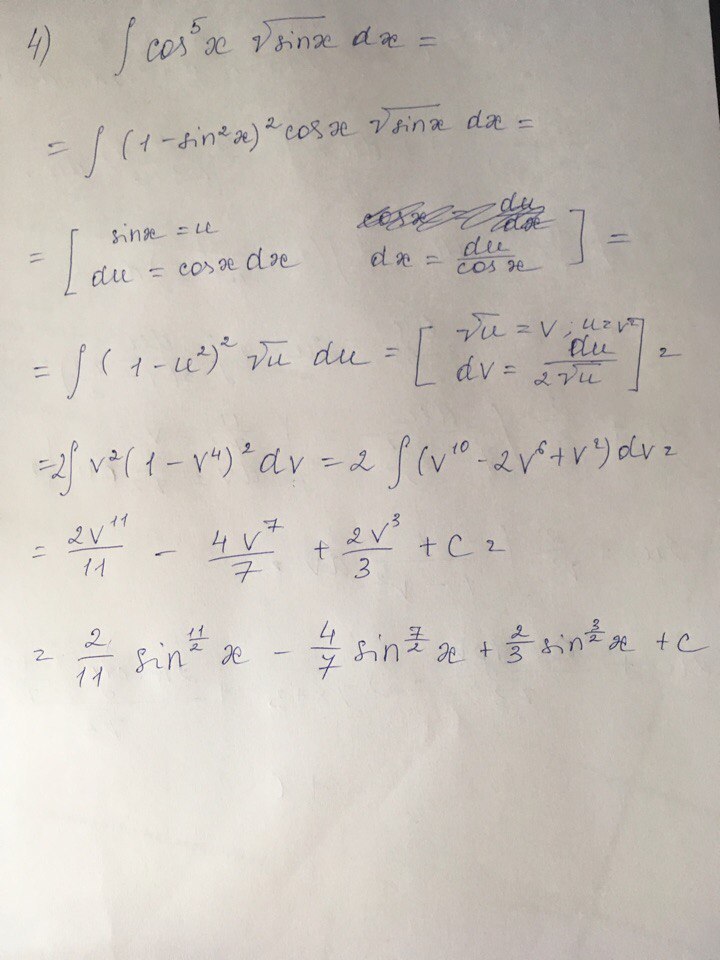 4) ∫ cos⁵x √sinx dx =
= ∫ (1 - sin²x)² cosx √sinx dx =
= [ sinx = u
du = cosx dx dx = du/cosx ] =
= ∫ (1 - u²)² √u du = [ √u = v ; u = v²
dv = du/(2√u) ] =
= 2∫ v² (1 - v⁴)² dv = 2 ∫ (v¹⁰ - 2v⁶ + v²) dv =
= 2v¹¹/11 - 4v⁷/7 + 2v³/3 + C =
= 2/11 sin^(11/2) x - 4/7 sin^(7/2) x + 2/3 sin^(3/2) x + C